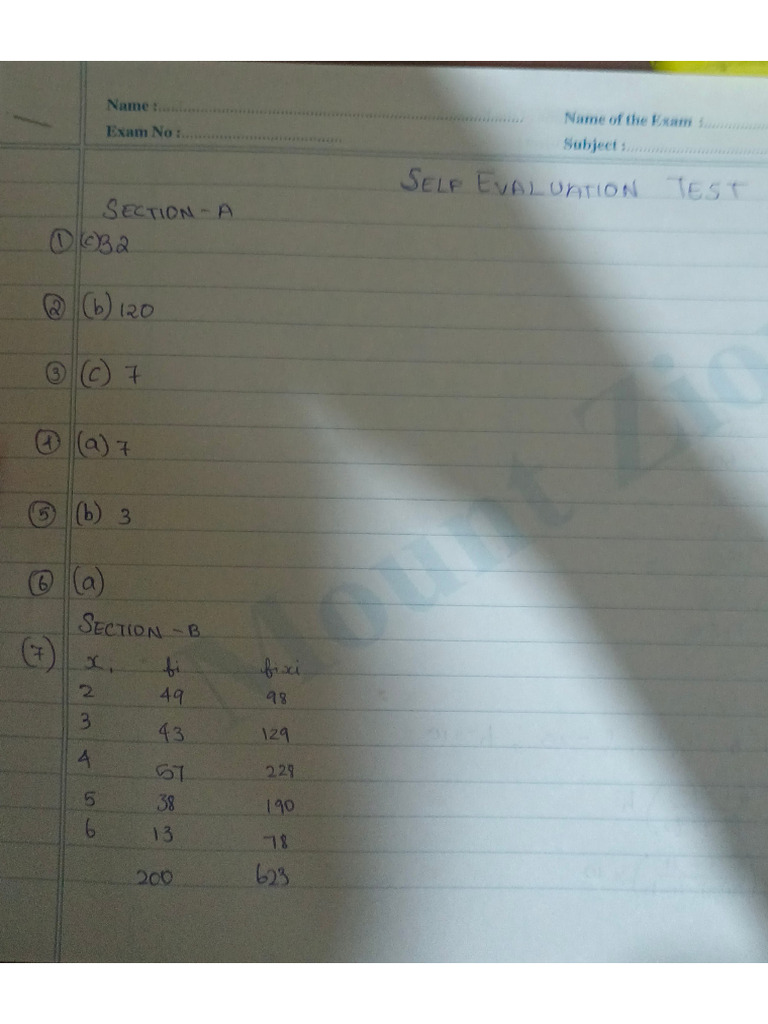 Name :
Name of the Exam :
Exam No :
Subject :
SELF EVALUATION TEST
SECTION - A
① (c) 32
② (b) 120
③ (c) 7
④ (a) 7
⑤ (b) 3
⑥ (a)
SECTION - B
(7) x, fi fixi
2 49 98
3 43 129
4 57 228
5 38 190
6 13 78
200 623
Mount Zio